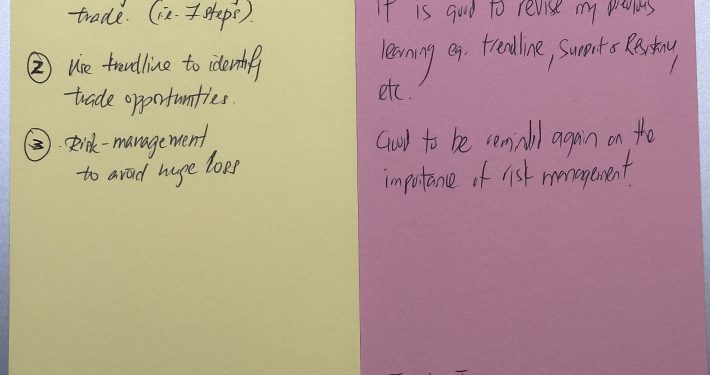 trade. (i.e. 7 steps).
② Use trendline to identify
trade opportunities.
③ Risk-management
to avoid huge loss
It is good to revise my previous
learning eg. trendline, Support & Resistany,
etc.
Good to be remindd again on the
importance of risk management.